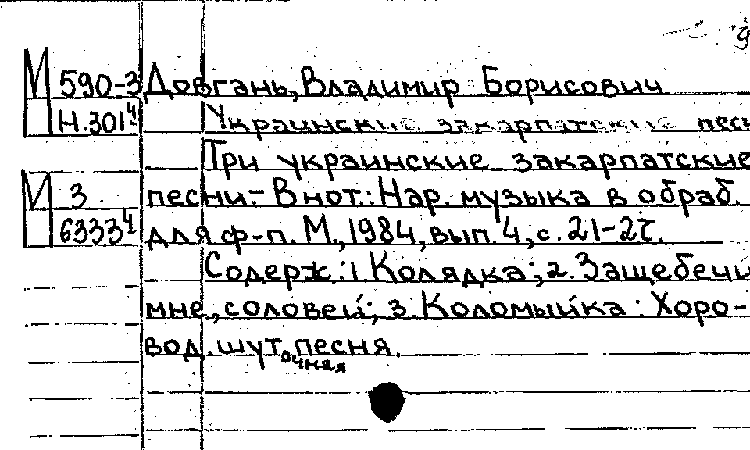 М 590-3 Довгань, Владимир Борисович
Н.301⁴ Украинские закарпатские
Три украинские закарпатские
И 3 песни. – В нот.: Нар. музыка в обраб.
6333⁴ для ф-п. М., 1984, вып. 4, с. 21-27.
Содерж.: 1. Колядка; 2. Защебечи
мне, соловей; 3. Коломыйка: Хоро-
вод. шуточная песня.